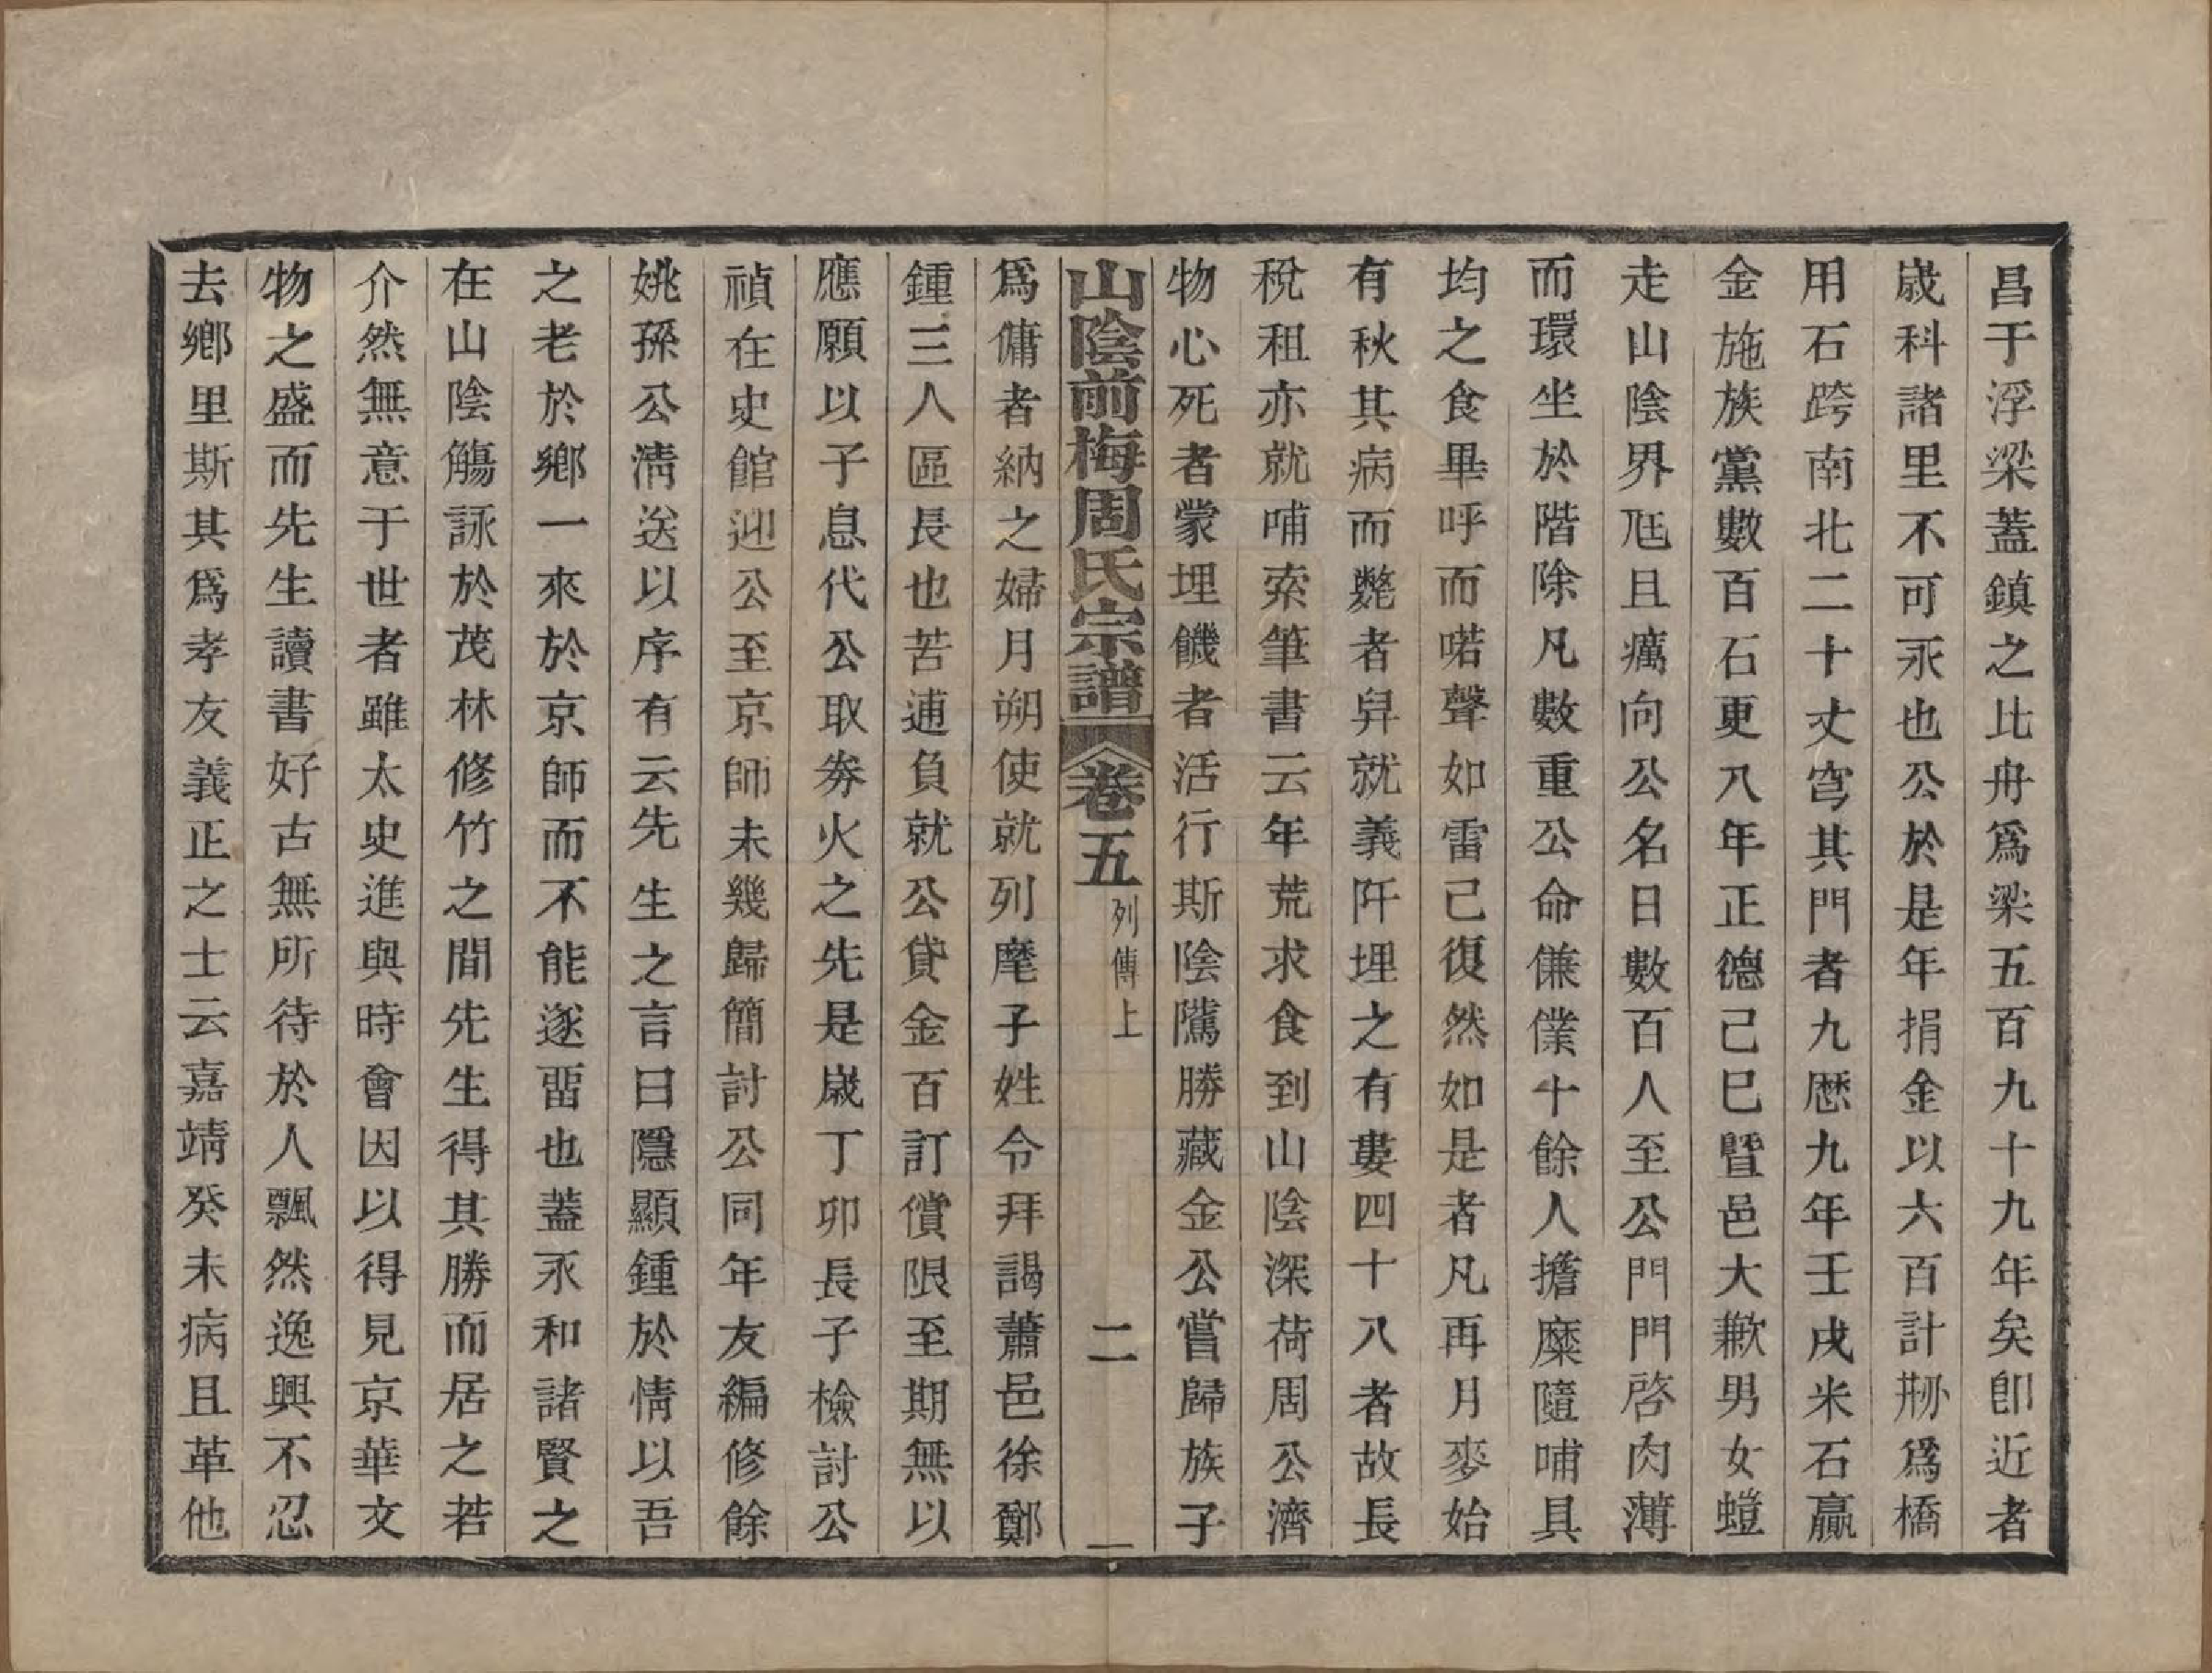 昌于浮梁蓋鎮之比舟爲梁五百九十九年矣卽近者
歲科諸里不可永也公於是年捐金以六百計刱爲橋
用石跨南北二十丈穹其門者九歷九年壬戌米石贏
金施族黨數百石更八年正德己巳暨邑大歉男女螘
走山陰界尫且癘向公名日數百人至公門門啓肉薄
而環坐於階除凡數重公命傔僕十餘人擔糜隨哺具
均之食畢呼而喏聲如雷己復然如是者凡再月麥始
有秋其病而斃者舁就義阡埋之有婁四十八者故長
稅租亦就哺索筆書云年荒求食到山陰深荷周公濟
物心死者蒙埋饑者活行斯陰隲勝藏金公嘗歸族子
山陰前梅周氏宗譜 卷五 列傳上 二
爲傭者納之婦月朔使就列麾子姓令拜謁蕭邑徐鄭
鍾三人區長也苦逋負就公貸金百訂償限至期無以
應願以子息代公取券火之先是歲丁卯長子檢討公
禎在史館迎公至京師未幾歸簡討公同年友編修餘
姚孫公淸送以序有云先生之言曰隱顯鍾於情以吾
之老於鄉一來於京師而不能遂畱也蓋永和諸賢之
在山陰觴詠於茂林修竹之間先生得其勝而居之若
介然無意于世者雖太史進與時會因以得見京華文
物之盛而先生讀書好古無所待於人飄然逸興不忍
去鄉里斯其爲孝友義正之士云嘉靖癸未病且革他